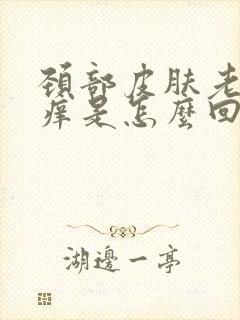 頸部皮肤老
痒是怎麼回
湖邊一亭